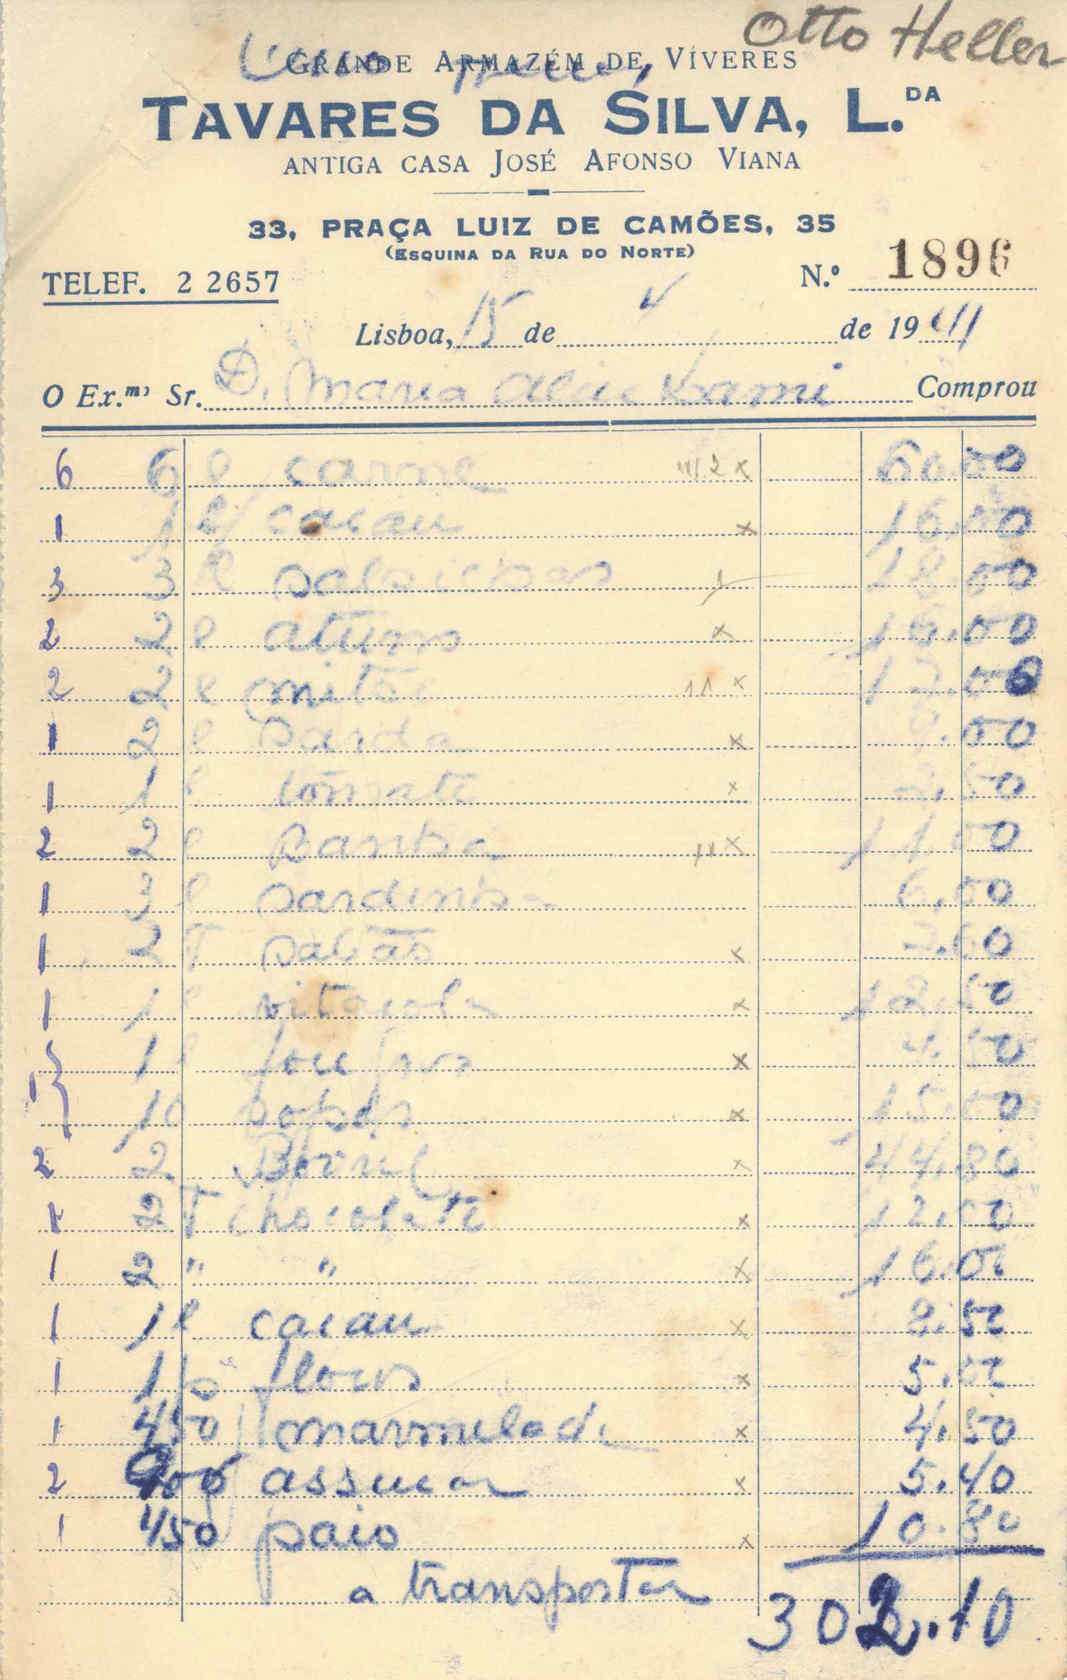 Otto Heller
GRANDE ARMAZÉM DE VÍVERES
TAVARES DA SILVA, L.DA
ANTIGA CASA JOSÉ AFONSO VIANA
33, PRAÇA LUIZ DE CAMÕES, 35
(ESQUINA DA RUA DO NORTE)
TELEF. 2 2657
N.º 1896
Lisboa, 15 de de 1941
O Ex.mo Sr. D. Maria Comprou
6 6 l carne 60.00
1 1 l/ cacau 16.00
3 3 l salsichas 18.00
2 2 l atum 16.00
2 2 l
1 2 l
1 1 l tomate 2.50
2 2 l Banha 11.00
1 3 l sardinha 6.00
1 2 T sabão
1 1 l vitacola 12.50
1 l 4.50
10 sopas 15.00
2 2 Bovril 44.80
1 2 T chocolate 12.00
1 2 " " 16.00
1 1 l cacau 8.50
1 1 flocos 5.00
1 450 marmelada 4.50
2 900 assucar 5.40
1 450 paio 10.80
a transportar 302.10